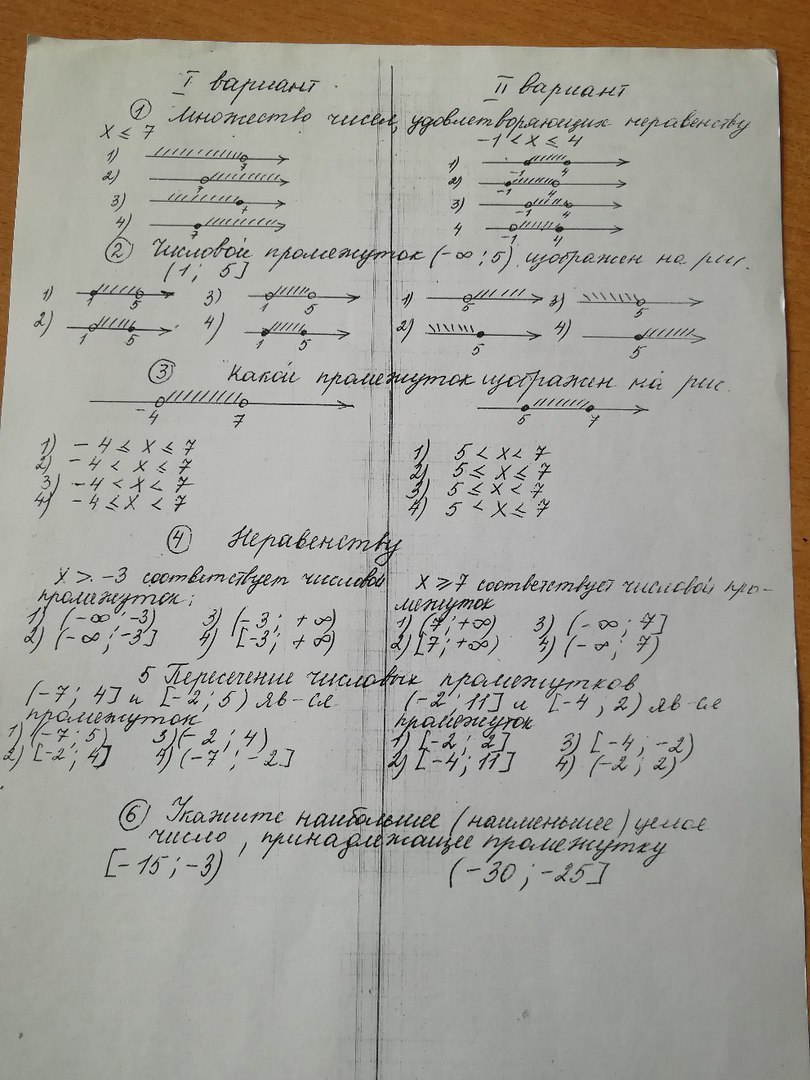 I вариант
II вариант
① Множество чисел, удовлетворяющих неравенству
x ≤ 7
-1 < x ≤ 4
1) 7
2) 7
3) 7
4) 7
1) -1 4
2) -1 4
3) -1 4
4 -1 4
② Числовой промежуток (-∞; 5) изображен на рис.
(1; 5]
1) 1 5
3) 1 5
2) 1 5
4) 1 5
1) 5
3) 5
2) 5
4) 5
③ Какой промежуток изображен на рис.
-4 7
5 7
1) -4 ≤ x ≤ 7
2) -4 < x ≤ 7
3) -4 < x < 7
4) -4 ≤ x < 7
1) 5 < x < 7
2) 5 ≤ x ≤ 7
3) 5 ≤ x < 7
4) 5 < x ≤ 7
④ Неравенству
x > -3 соответствует числовой
промежуток:
1) (-∞; -3) 3) (-3; +∞)
2) (-∞; -3] 4) [-3; +∞)
x ≥ 7 соответствует числовой про-
межуток
1) (7; +∞) 3) (-∞; 7]
2) [7; +∞) 4) (-∞; 7)
5 Пересечение числовых промежутков
(-7; 4] и [-2; 5) яв-ся
промежуток
1) (-7; 5) 3) (-2; 4)
2) [-2; 4] 4) (-7; -2]
(-2; 11] и [-4; 2) яв-ся
промежуток
1) [-2; 2] 3) [-4; -2)
2) [-4; 11] 4) (-2; 2)
⑥ Укажите наибольшее (наименьшее) целое
число, принадлежащее промежутку
[-15; -3)
(-30; -25]